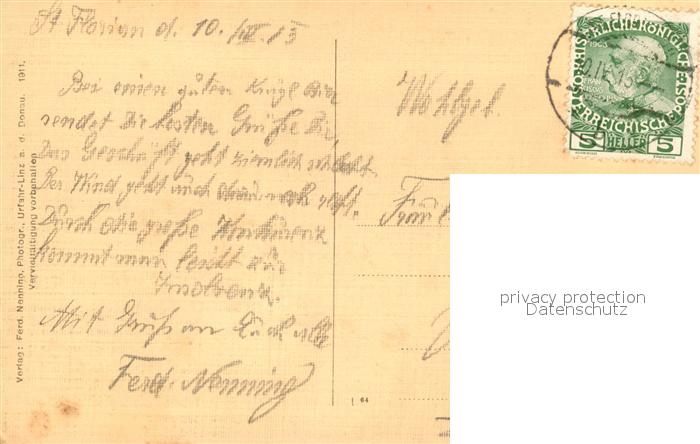 St Florian d. 10./IV. 13
Bei einem guten Krügl Bier
sendet die besten Grüße Dir
Das Geschäft geht ziemlich schlecht.
Der Wind geht auch noch recht.
Durch die große Konkurenz
kommt man leicht zur
Insolvenz.
Mit Gruß an Euch alle
Ferd. Nenning
Wohlgeb.
Verlag: Ferd. Nenning, Photogr., Urfahr-Linz a. d. Donau. 1911.
Vervielfältigung vorbehalten
64
1908
KAISERLICHE KÖNIGLICHE
ÖSTERREICHISCHE POST
5 HELLER 5
privacy protection
Datenschutz